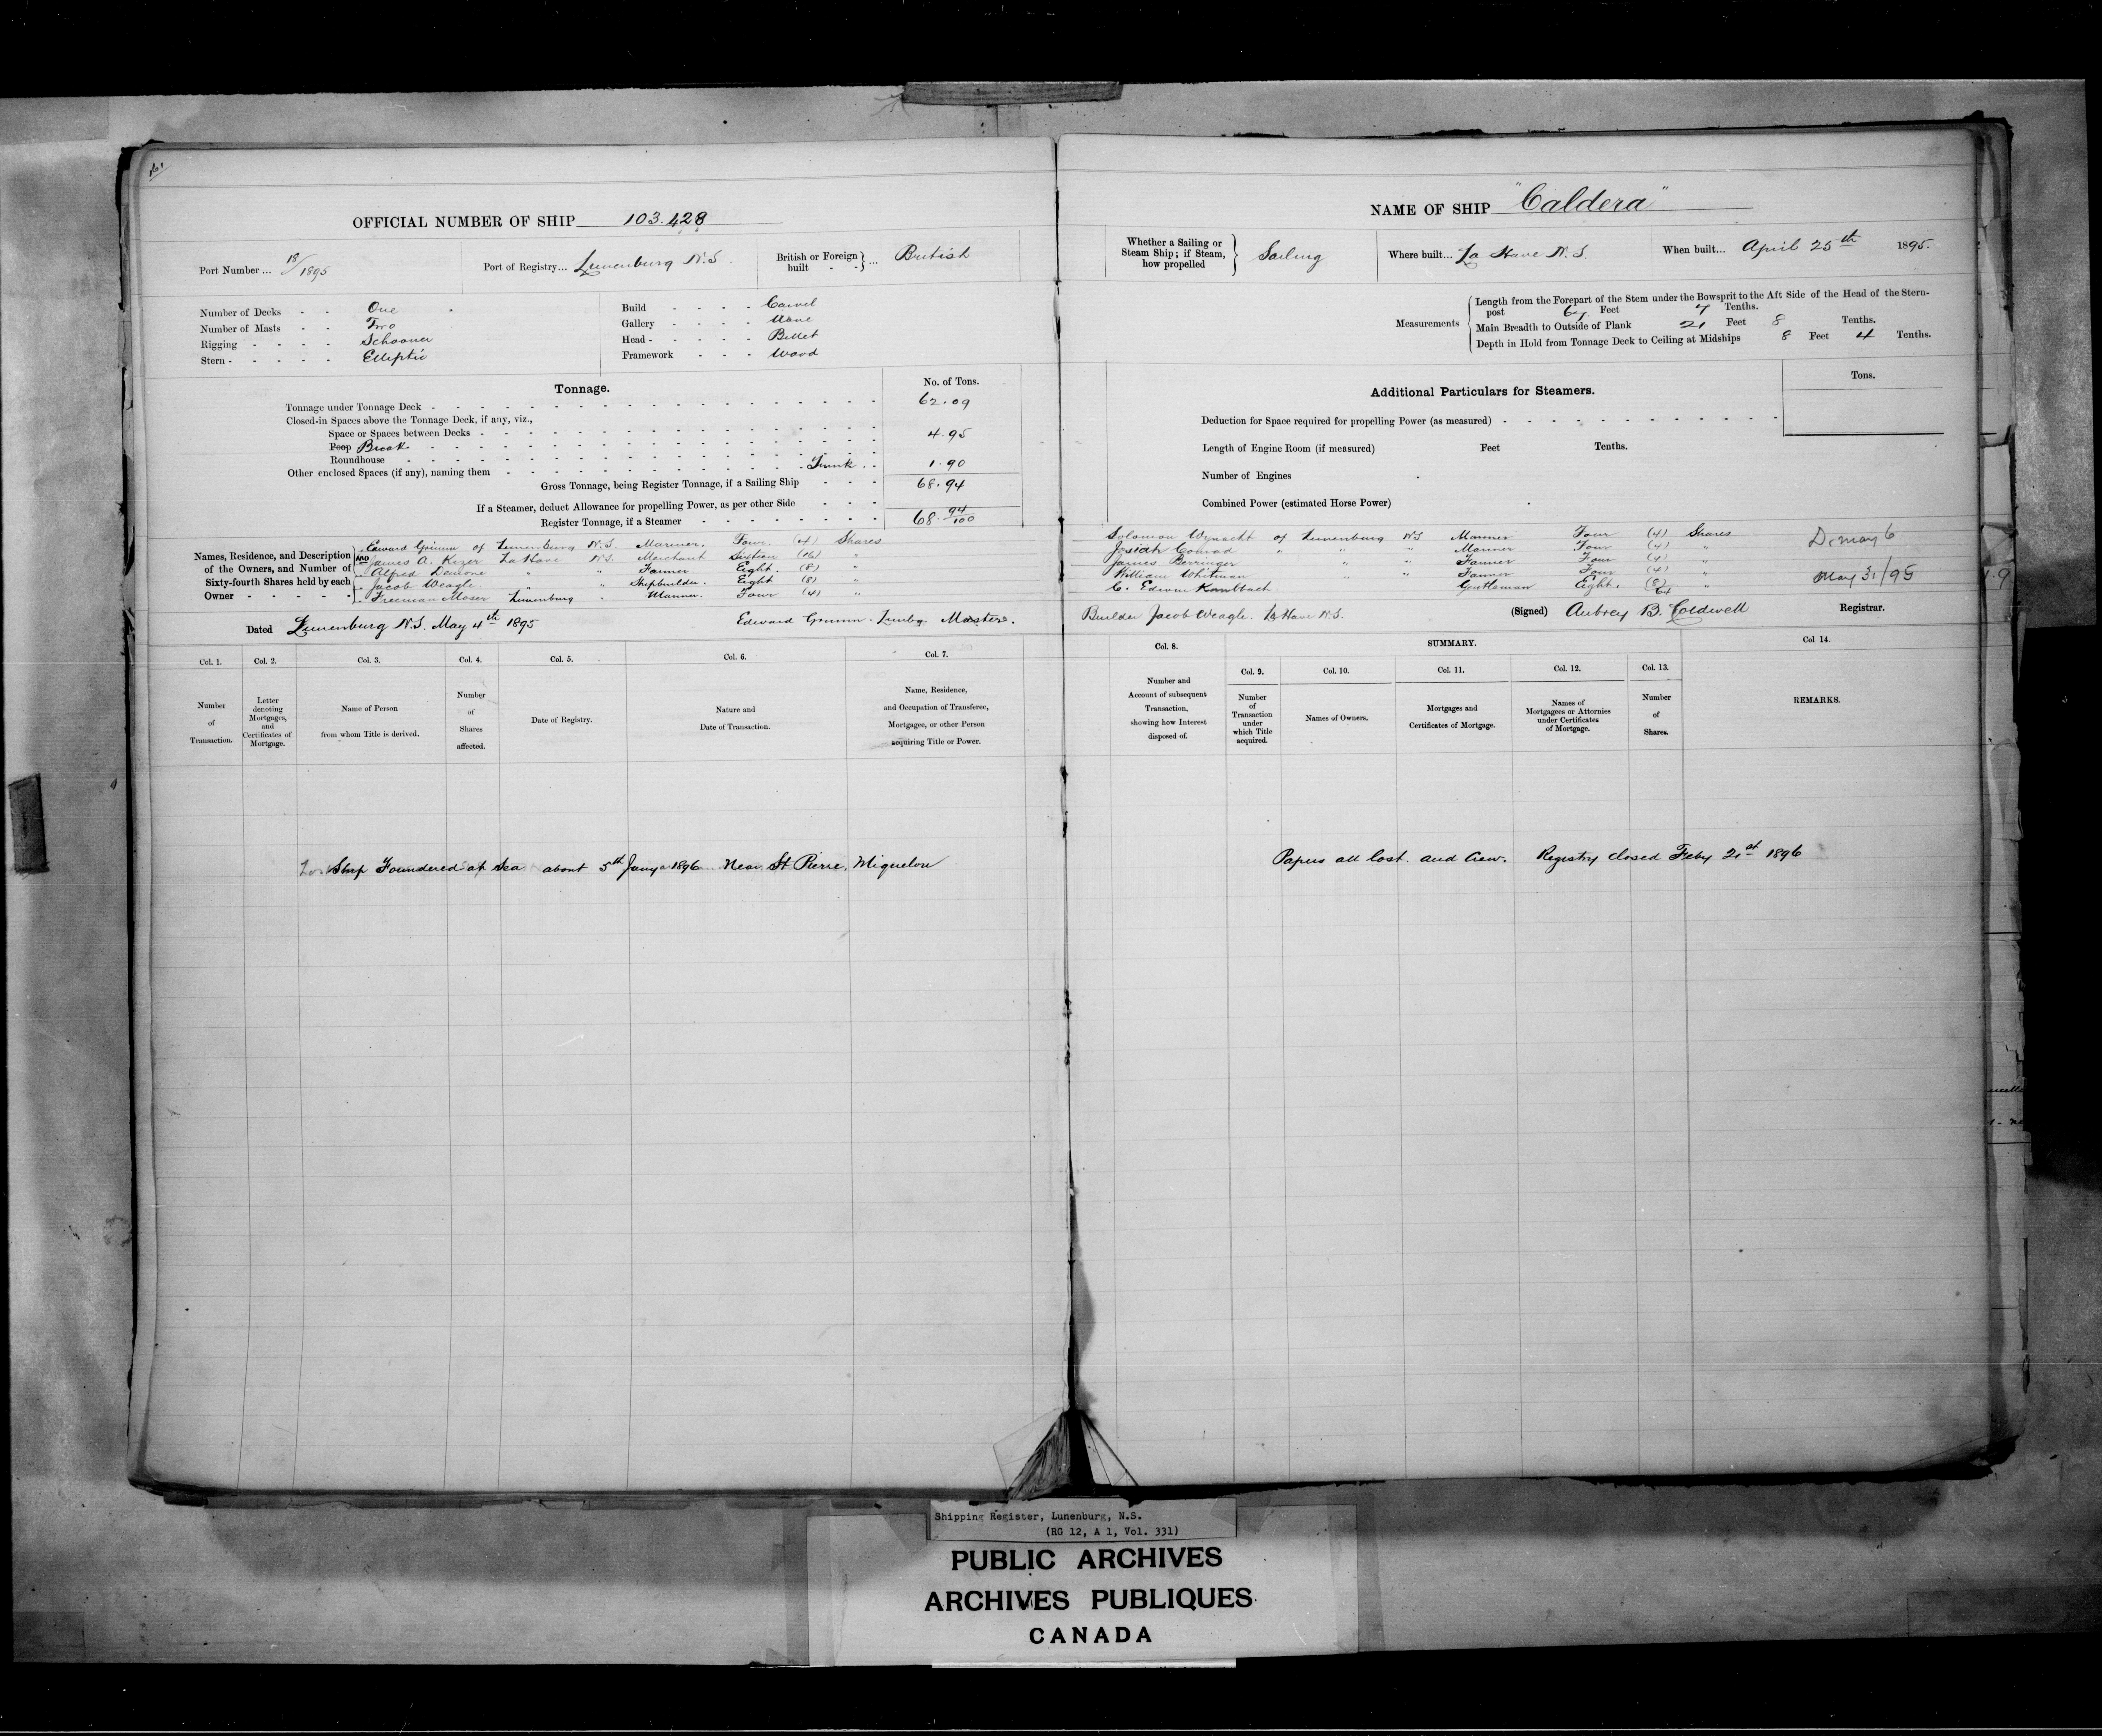 161
OFFICIAL NUMBER OF SHIP 103.428
Port Number... 18/1895
Port of Registry... Lunenburg N.S.
British or Foreign built - - } ... British
Number of Decks - - One
Number of Masts - - Two
Rigging - - - - Schooner
Stern - - - - - Elliptic
Build - - - - Carvel
Gallery - - - - None
Head - - - - - Billet
Framework - - - Wood
Tonnage.
No. of Tons.
Tonnage under Tonnage Deck - 62.09
Closed-in Spaces above the Tonnage Deck, if any, viz.,
Space or Spaces between Decks - 4.95
Poop Break
Roundhouse
Other enclosed Spaces (if any), naming them - Trunk - 1.90
Gross Tonnage, being Register Tonnage, if a Sailing Ship - - - 68.94
If a Steamer, deduct Allowance for propelling Power, as per other Side - - -
Register Tonnage, if a Steamer - 68 94/100
Names, Residence, and Description of the Owners, and Number of Sixty-fourth Shares held by each Owner - - - - -
Edward Grimm of Lunenburg N.S. Mariner, Four (4) Shares
James A. Kizer La Have N.S. Merchant Sixteen (16) "
Alfred Demone " " Farmer Eight (8) "
Jacob Weagle " " Shipbuilder Eight (8) "
Freeman Moser Lunenburg " Mariner Four (4) "
Dated Lunenburg N.S. May 4th 1895
Edward Grimm Lunbg. Master.
Col. 1. Col. 2. Col. 3. Col. 4. Col. 5. Col. 6. Col. 7.
Number of Transaction.
Letter denoting Mortgages, and Certificates of Mortgage.
Name of Person from whom Title is derived.
Number of Shares affected.
Date of Registry.
Nature and Date of Transaction.
Name, Residence, and Occupation of Transferee, Mortgagee, or other Person acquiring Title or Power.
Ship Foundered at Sea about 5th Jany 1896 Near St Pierre, Miquelon
NAME OF SHIP "Caldera"
Whether a Sailing or Steam Ship; if Steam, how propelled } Sailing
Where built... La Have N.S.
When built... April 25th 1895.
Measurements
Length from the Forepart of the Stem under the Bowsprit to the Aft Side of the Head of the Stern-
post 67 Feet 7 Tenths.
Main Breadth to Outside of Plank 21 Feet 8 Tenths.
Depth in Hold from Tonnage Deck to Ceiling at Midships 8 Feet 4 Tenths.
Additional Particulars for Steamers.
Tons.
Deduction for Space required for propelling Power (as measured)
Length of Engine Room (if measured) Feet Tenths.
Number of Engines
Combined Power (estimated Horse Power)
Solomon Wynacht of Lunenburg NS Mariner Four (4) Shares
Josiah Conrad " " " Mariner Four (4) "
James Berringer " " Farmer Four (4) "
William Whitman " " Farmer Four (4) "
C. Edwin Kaulbach Gentleman Eight. (8) "
64
May 6
May 31/95
Builder Jacob Weagle. La Have N.S.
(Signed) Aubrey B. Coldwell Registrar.
Col. 8.
SUMMARY.
Col 14.
Col. 9. Col. 10. Col. 11. Col. 12. Col. 13.
Number and Account of subsequent Transaction, showing how Interest disposed of.
Number of Transaction under which Title acquired.
Names of Owners.
Mortgages and Certificates of Mortgage.
Names of Mortgagees or Attornies under Certificates of Mortgage.
Number of Shares.
REMARKS.
Papers all lost. and Crew. Registry closed Feby 21st 1896
Shipping Register, Lunenburg, N.S.
(RG 12, A 1, Vol. 331)
PUBLIC ARCHIVES
ARCHIVES PUBLIQUES
CANADA